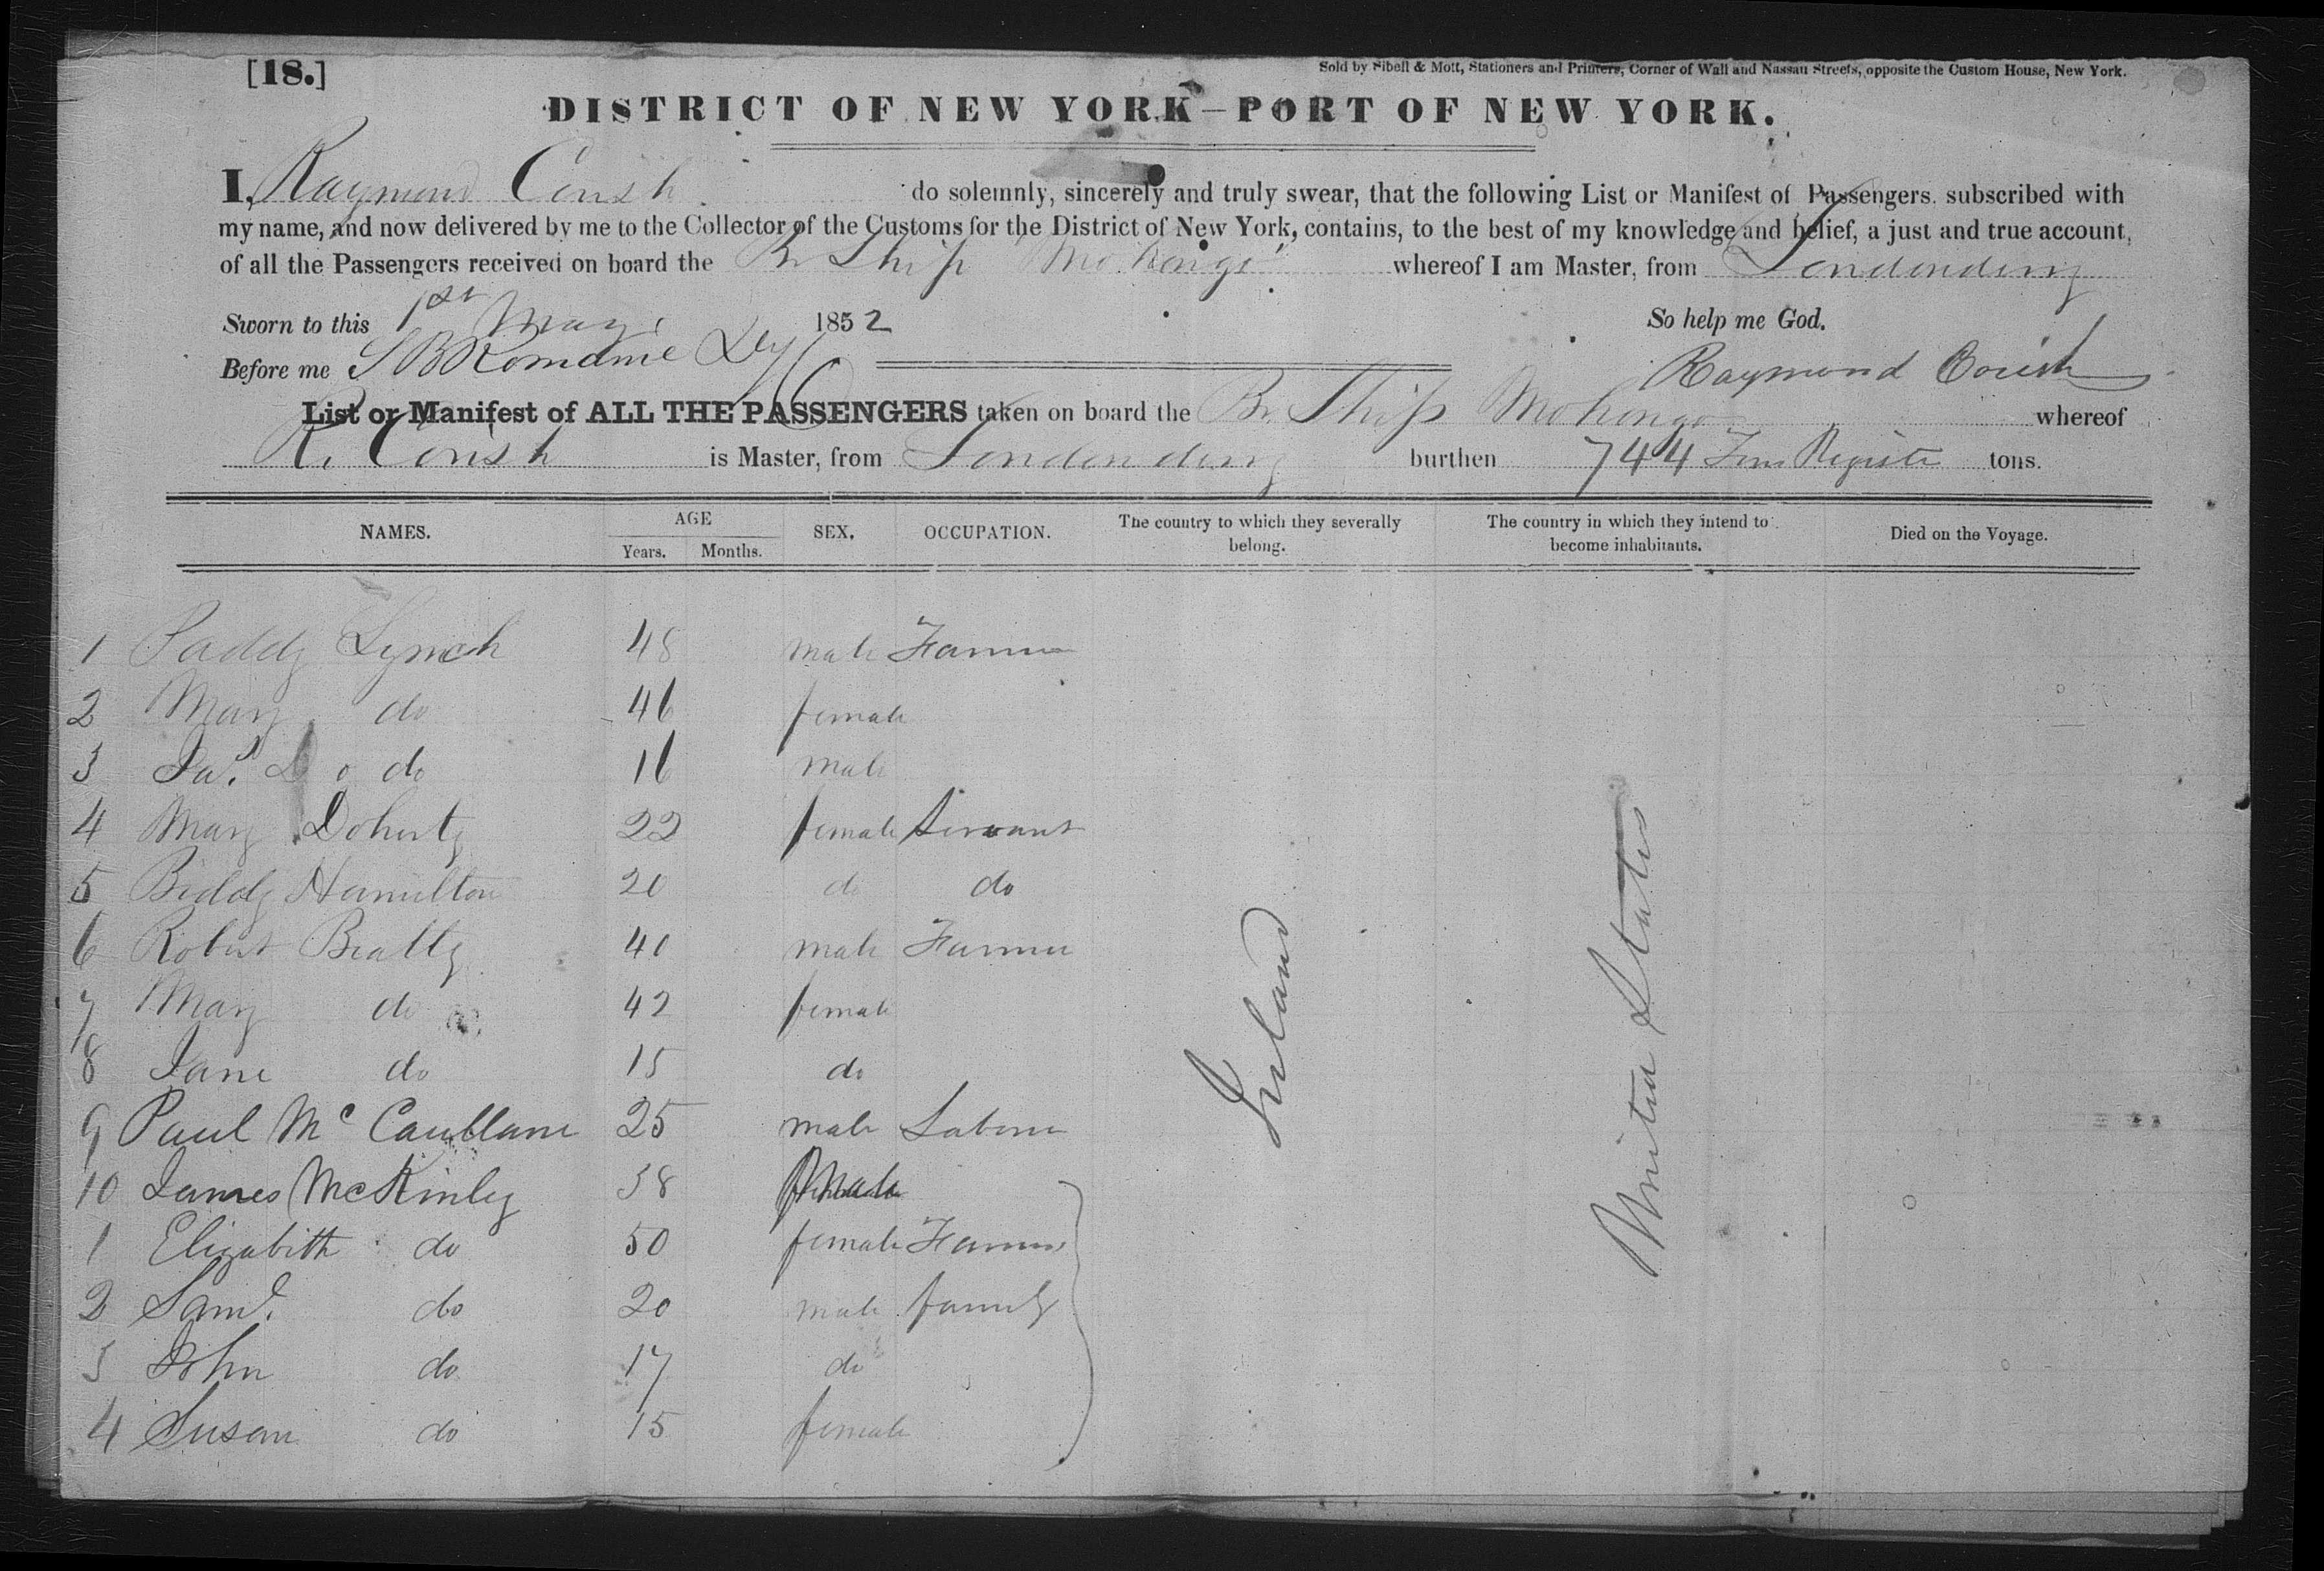 [18.]
Sold by Sibell & Mott, Stationers and Printers, Corner of Wall and Nassau Streets, opposite the Custom House, New York.
DISTRICT OF NEW YORK—PORT OF NEW YORK.
I, Raymond Corish do solemnly, sincerely and truly swear, that the following List or Manifest of Passengers, subscribed with
my name, and now delivered by me to the Collector of the Customs for the District of New York, contains, to the best of my knowledge and belief, a just and true account,
of all the Passengers received on board the Br Ship "Mohongo" whereof I am Master, from Londonderry
Sworn to this 1st May 1852 So help me God.
Before me S B Romaine Dy C Raymond Corish
List or Manifest of ALL THE PASSENGERS taken on board the Br. Ship Mohongo whereof
R. Corish is Master, from Londonderry burthen 744 Tons Register tons.
NAMES. AGE Years. Months. SEX. OCCUPATION. The country to which they severally belong. The country in which they intend to become inhabitants. Died on the Voyage.
1 Paddy Lynch 48 male Farmer
2 Mary do 46 female
3 Jas. do 16 male
4 Mary Doherty 22 female Servant
5 Biddy Hamilton 20 do do
6 Robert Beatty 40 male Farmer
7 Mary do 42 female
8 Jane do 15 do
9 Paul Mc 25 male Laborer
10 James McKinley 38 male
1 Elizabeth do 50 female Farmer
2 Saml. do 20 male family
3 John do 17 do
4 Susan do 15 female
Ireland
United States